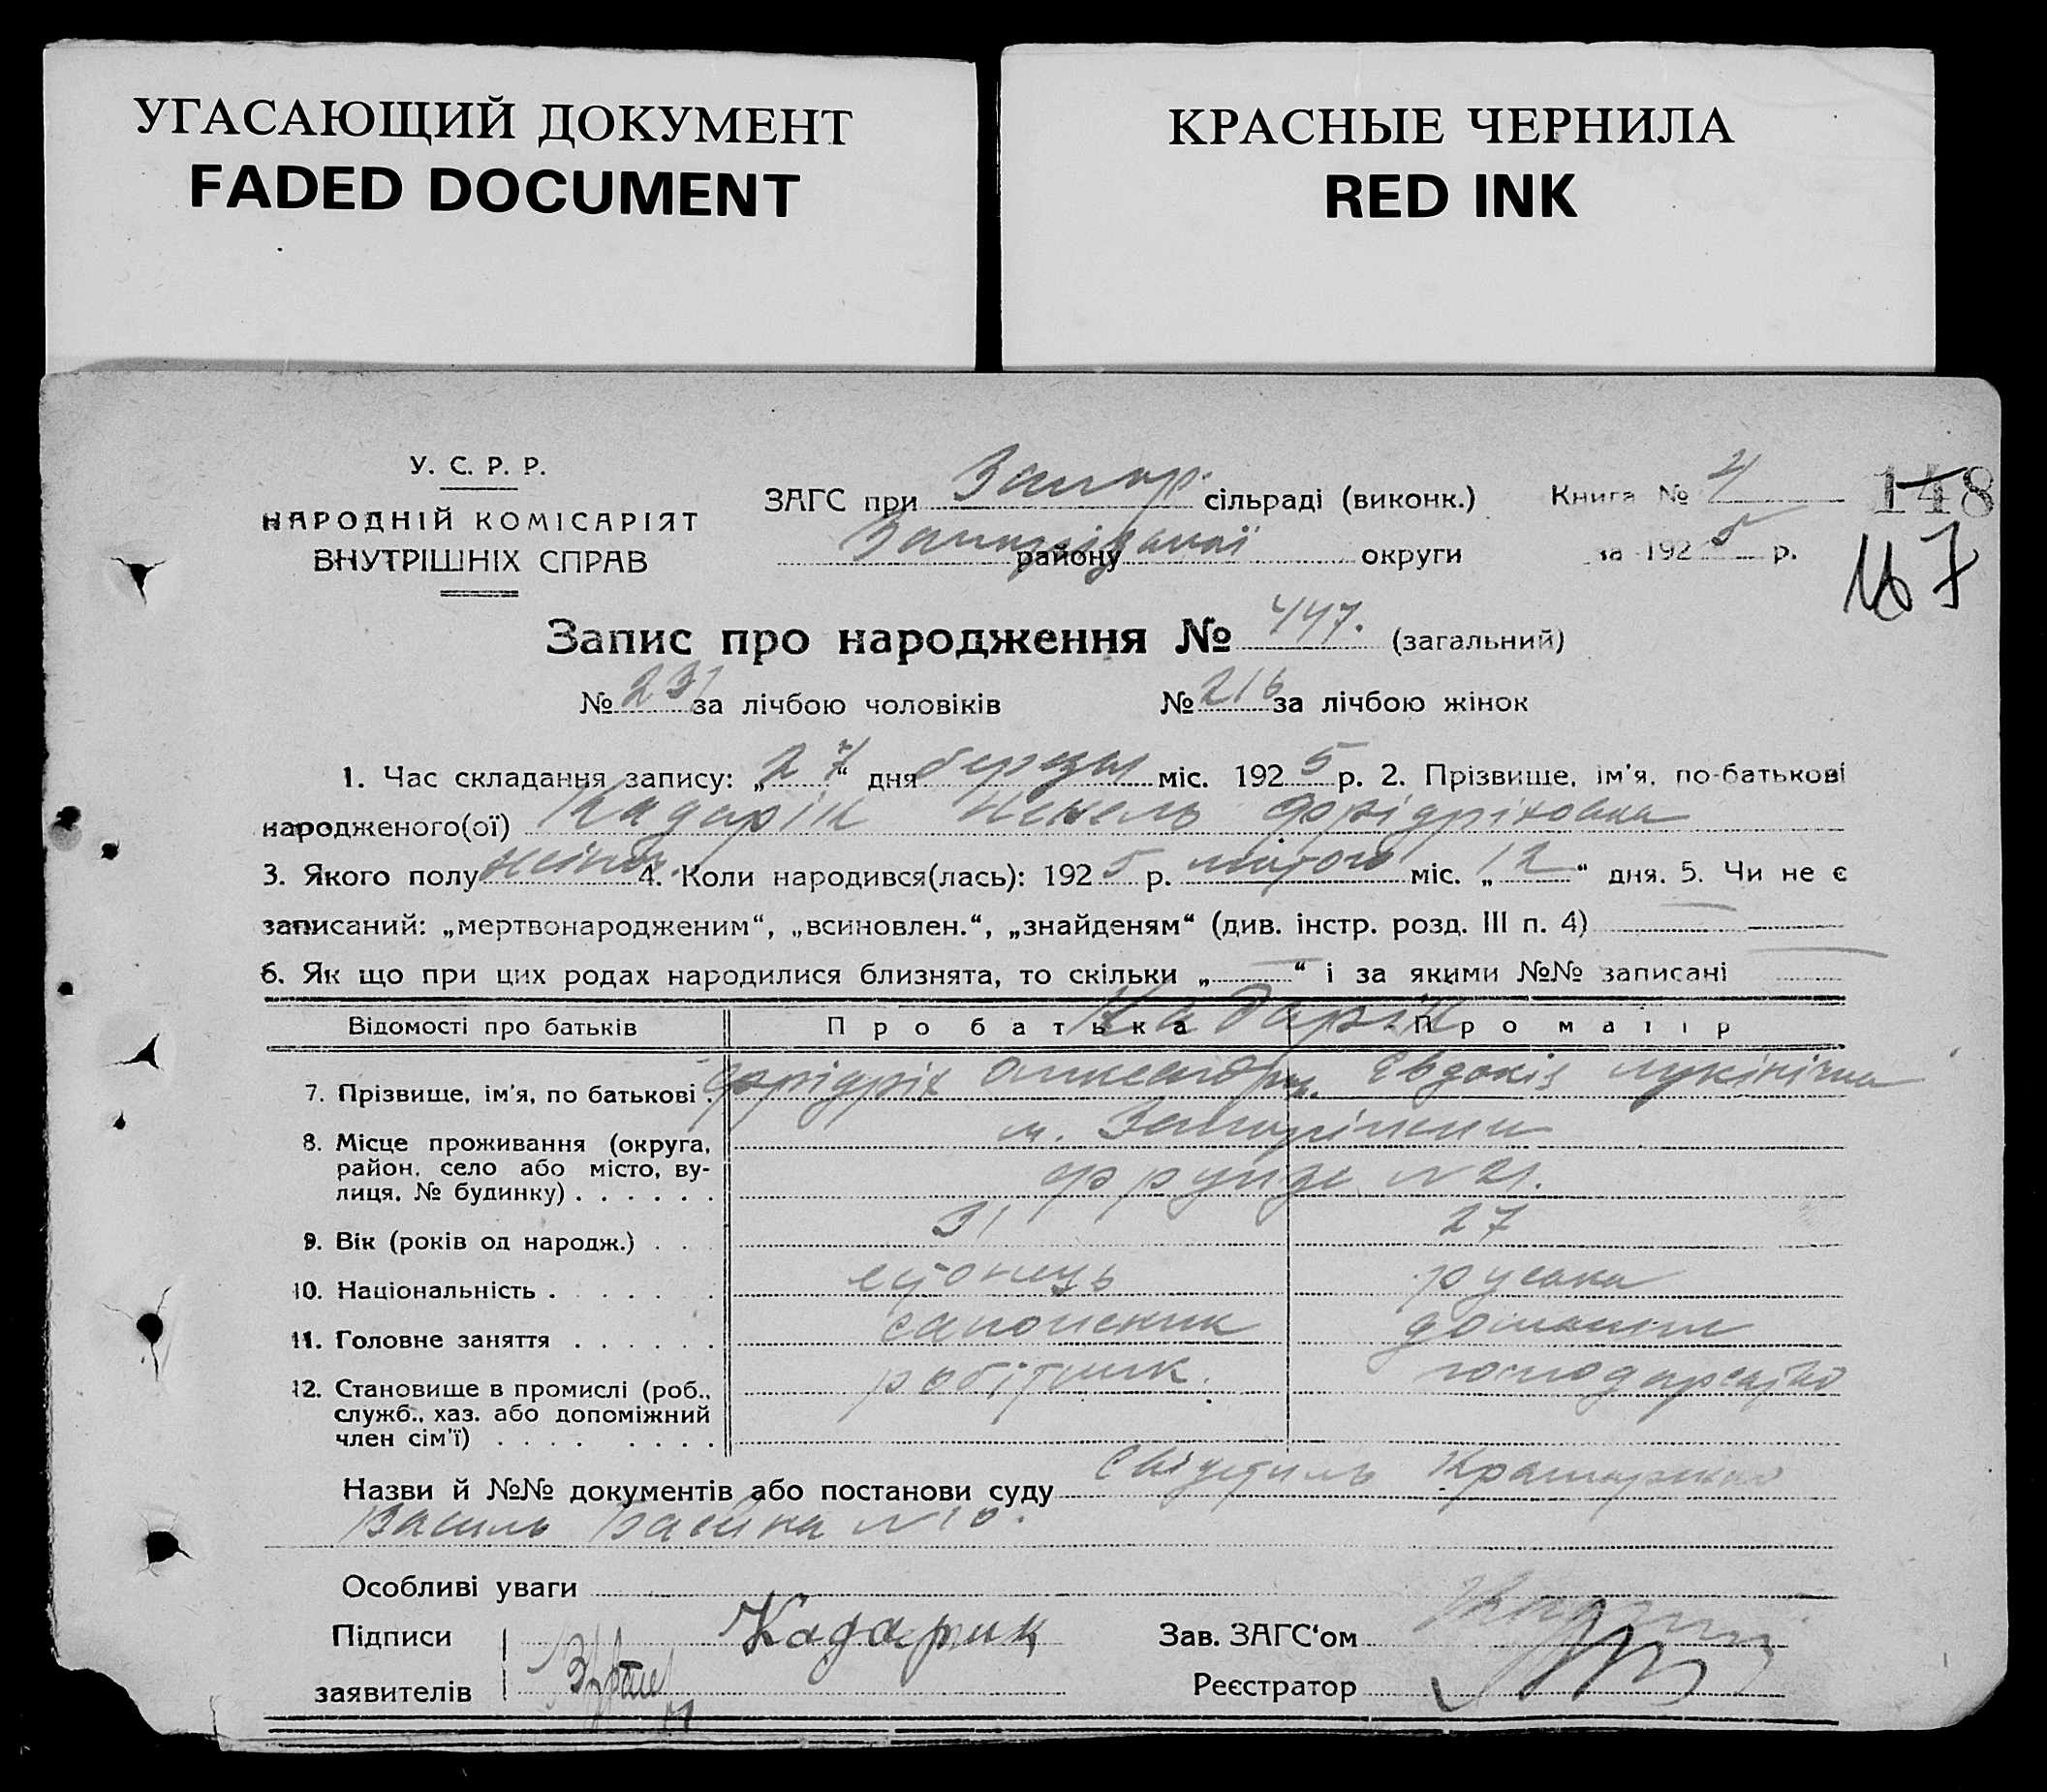 УГАСАЮЩИЙ ДОКУМЕНТ
FADED DOCUMENT
КРАСНЫЕ ЧЕРНИЛА
RED INK
У. С. Р. Р.
НАРОДНІЙ КОМІСАРІЯТ
ВНУТРІШНІХ СПРАВ
ЗАГС при Запор. сільраді (виконк.)
Запорізької району округи
Книга № 4
за 1925 р.
148
Запис про народження № 447. (загальний)
№ 231 за лічбою чоловіків № 216 за лічбою жінок
1. Час складання запису: „27“ дня березня міс. 1925 р. 2. Прізвище, ім'я, по-батькові
народженого(ої) Кадарік Фрідріховна
3. Якого полу жіноч. 4. Коли народився(лась): 1925 р. лютого міс. „12“ дня. 5. Чи не є
записаний: „мертвонародженим“, „всиновлен.“, „знайденям“ (див. інстр. розд. III п. 4)
6. Як що при цих родах народилися близнята, то скільки „ “ і за якими №№ записані
Відомості про батьків Про батька Про матір
Кадарік
7. Прізвище, ім'я, по батькові . Фрідріх Олександр. Євдокія Лукінічна
8. Місце проживання (округа, м. Запоріжжя
район, село або місто, ву-
лиця, № будинку) . . . . . . Фрунзе № 21.
9. Вік (років од народж.) . . . 31 27
10. Національність . . . . . . естонець руська
11. Головне заняття . . . . . . сапожник домашнє
12. Становище в промислі (роб., робітник. господарство
служб., хаз. або допоміжний
член сім'ї) . . . . . . . .
Назви й №№ документів або постанови суду Свідетиль Крамаренко
Василь № 10.
Особливі уваги
Підписи Кадарик Зав. ЗАГС'ом
заявителів Реєстратор